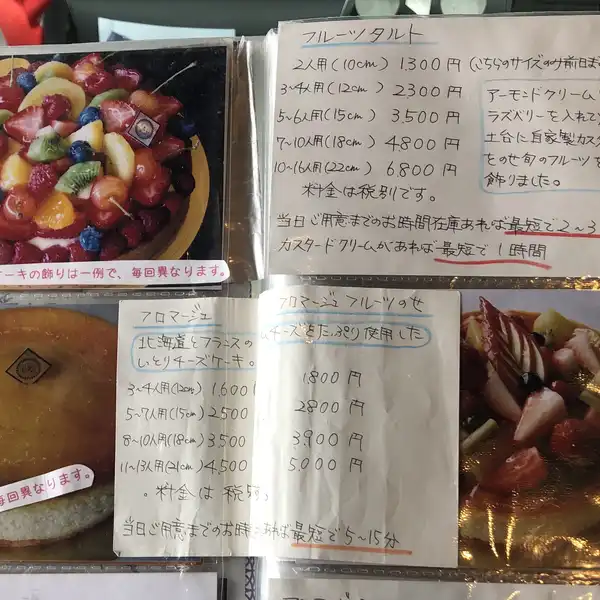 フルーツタルト
2人用(10cm) 1300円 (こちらのサイズのみ前日ま
3~4人用(12cm) 2300円
5~6人用(15cm) 3,500円
7~10人用(18cm) 4800円
10~16人用(22cm) 6800円
料金は税別です。
アーモンドクリーム
ラズベリーを入れて
土台に自家製カス
をのせ旬のフルーツを
飾りました。
当日ご用意までのお時間在庫あれば最短で2~3
カスタードクリームがあれば最短で1時間
ケーキの飾りは一例で、毎回異なります。
フロマージュ
北海道とフランスの
いとりチーズケーキ。
3~4人用(12cm) 1,600
5~7人用(15cm) 2,500
8~10人用(18cm) 3,500
11~13人用(21cm) 4,500
。料金は税別
当日ご用意までのお時
フロマージュ フルーツのせ
チーズをたっぷり使用した
1800円
2800円
3900円
5,000円
あれば最短で5~15分
毎回異なります。